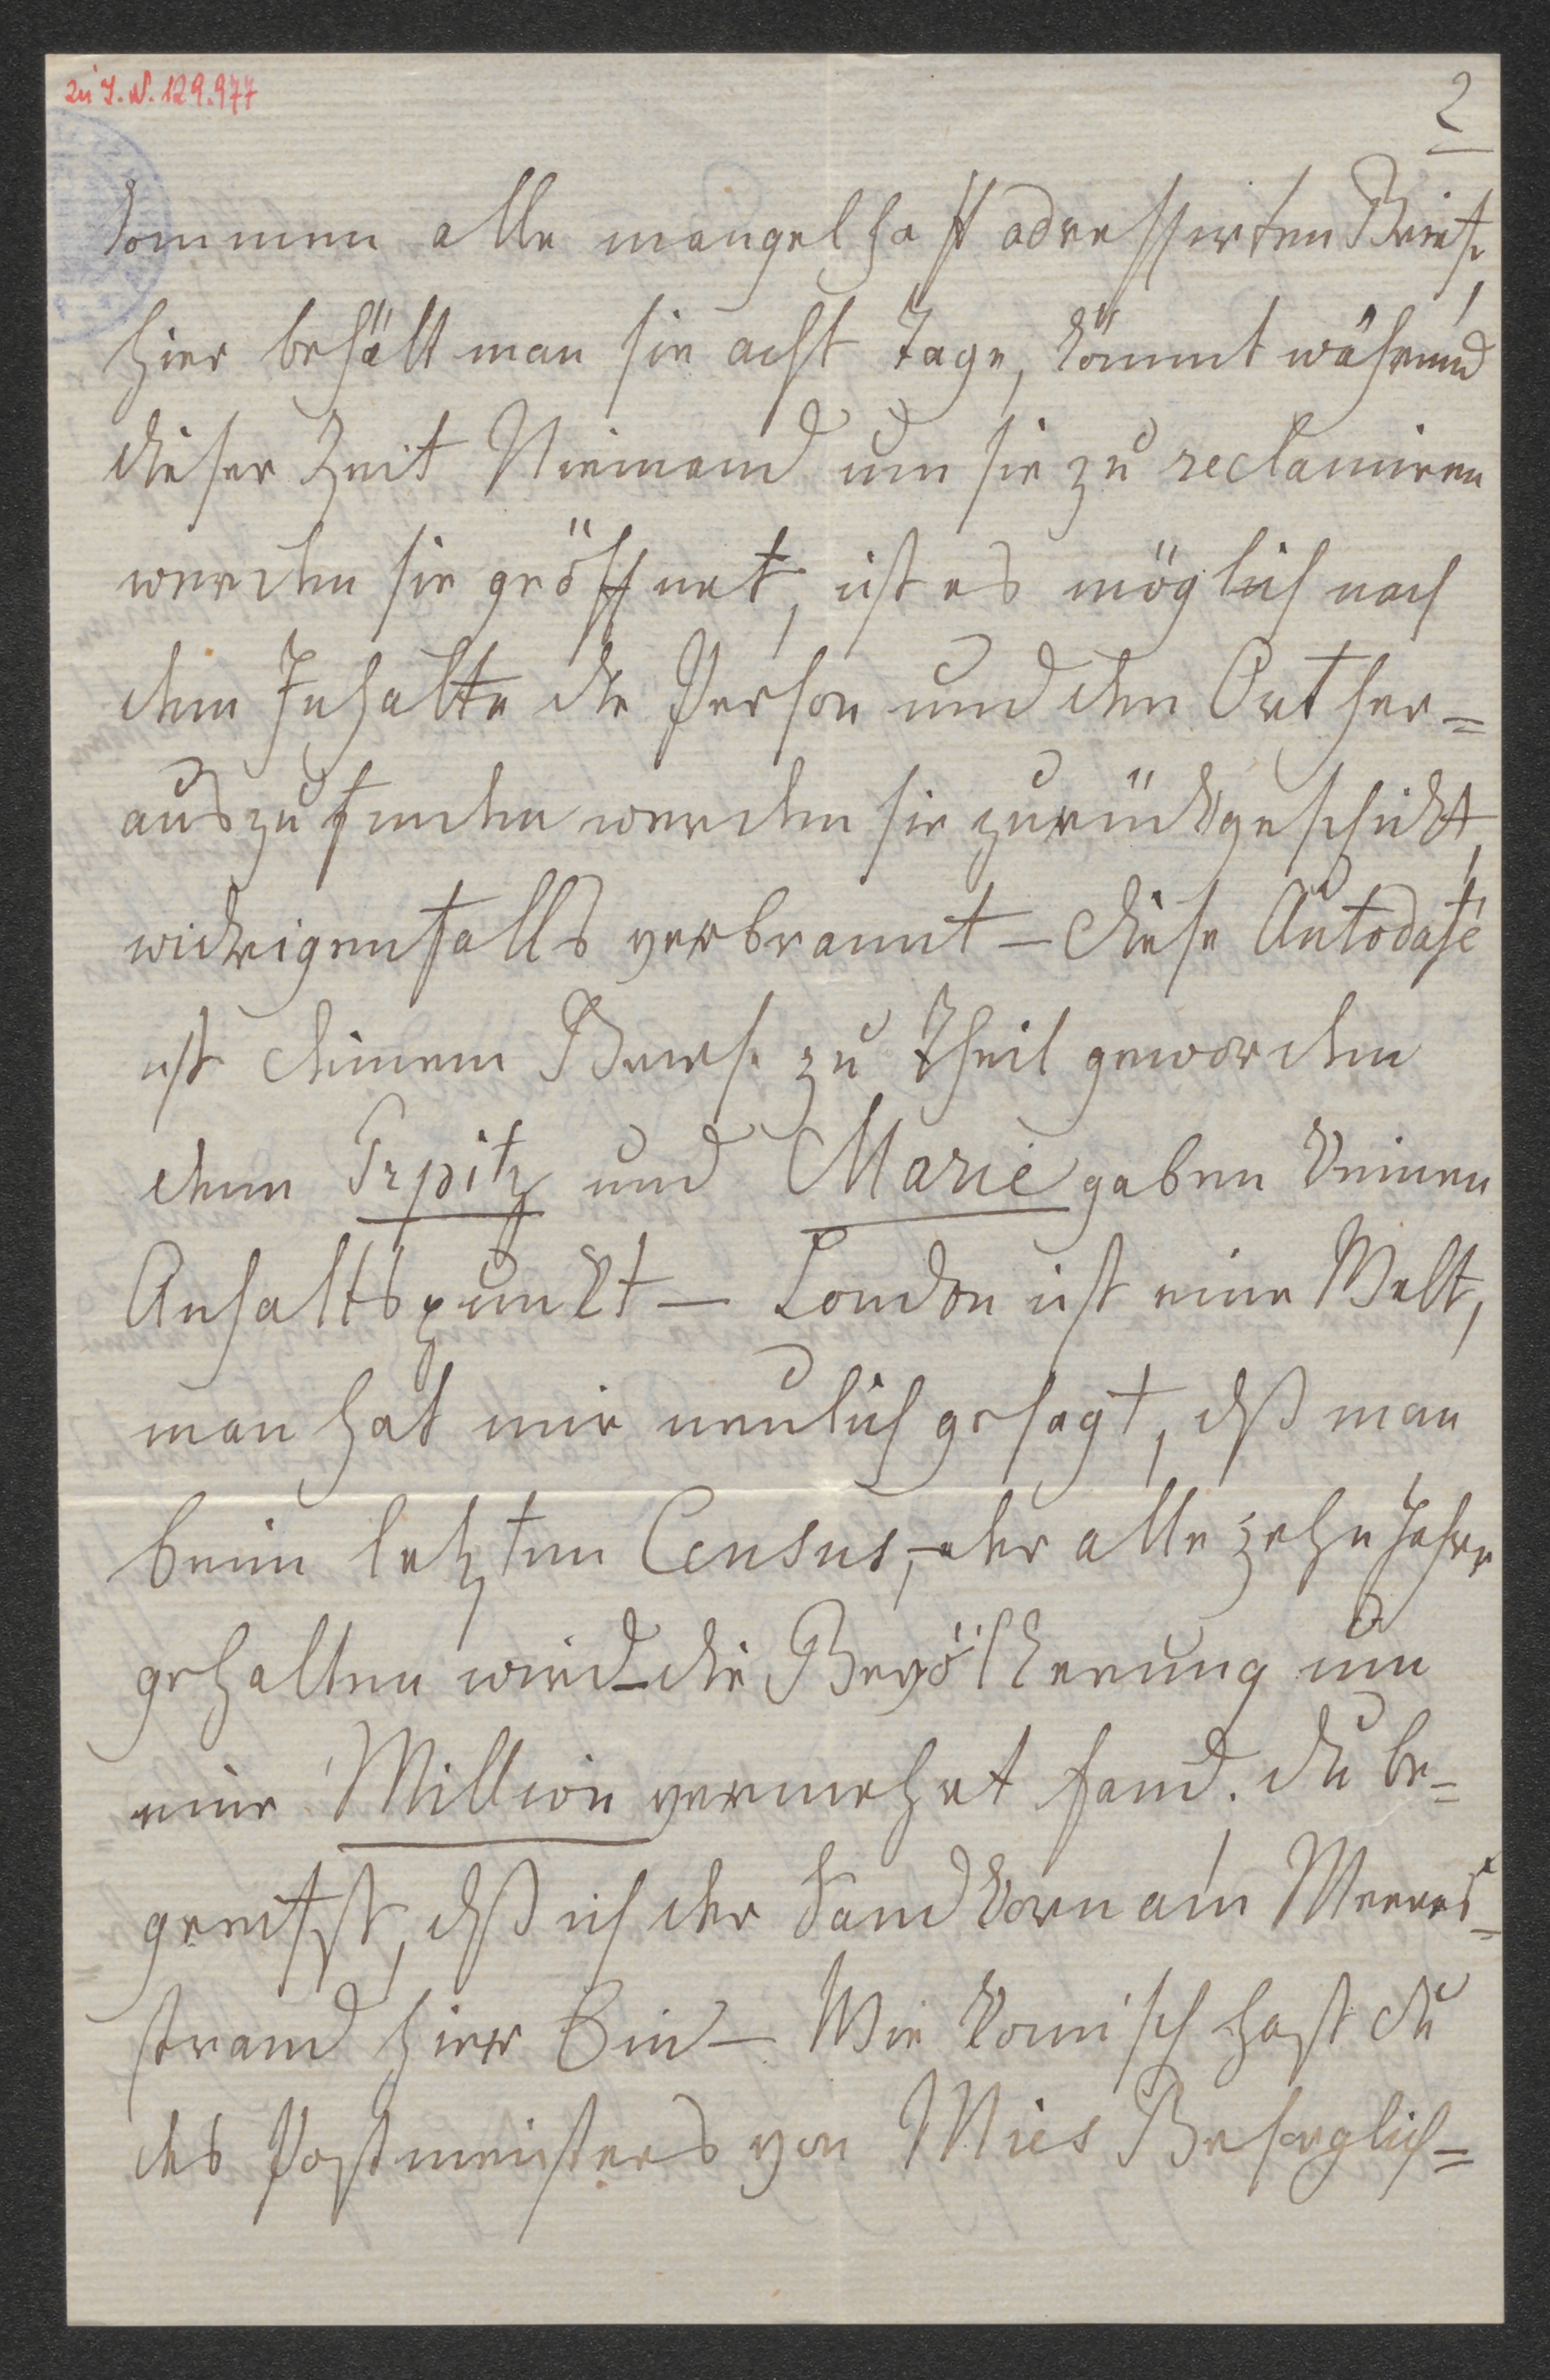 zu I.N. 129.977
2
kommen alle mangelhaft adressirten Briefe,
hier behält man sie acht Tage, kömmt während
dieser Zeit Niemand um sie zu reclamiren
werden sie geöffnet, ist es möglich nach
dem Inhalte die Person und den Ort her=
auszufinden werden sie zurückgeschickt,
widrigenfalls verbrannt – diese Autodafé
ist deinem Briefe zu Theil geworden
denn Trpitz und Marie gaben keinen
Anhaltspunkt – London ist eine Welt,
man hat mir neulich gesagt, dß man
beim letzten Census, – der alle zehn Jahre
gehalten wird – die Bevölkerung um
eine Million vermehrt fand. Du be=
greifst, dß ich der Sandkorn am Meeres=
strand hier bin – Wie komisch hast du
des Postmeisters von Mies Besorglich=